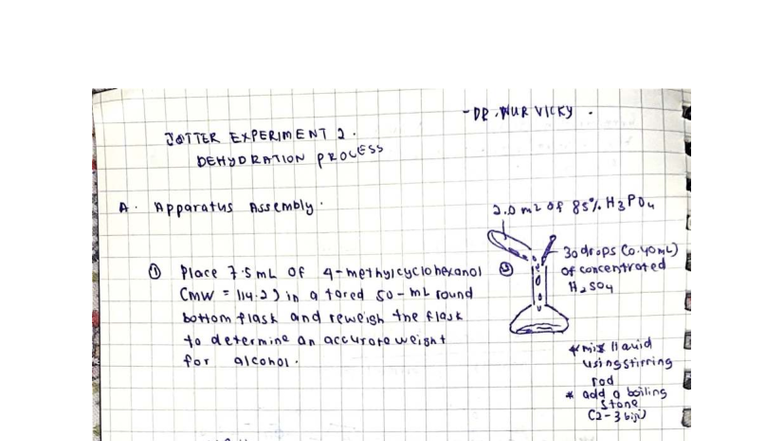 -DR.NUR VICKY.
JOTTER EXPERIMENT 2.
DEHYDRATION PROCESS
A. Apparatus Assembly.
2.0 mL of 85% H₃PO₄
① Place 7.5mL of 4-methylcyclohexanol
(MW = 114.2) in a tared 50-mL round
bottom flask and reweigh the flask
to determine an accurate weight
for alcohol.
②
30 drops (0.40mL)
of concentrated
H₂SO₄
* mix liquid
using stirring
rod
* add a boiling
stone
(2-3 biji)